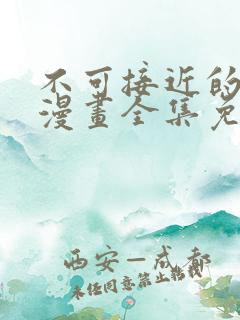 不可接近的
漫畫全集免
西安—成都
未经同意禁止转载